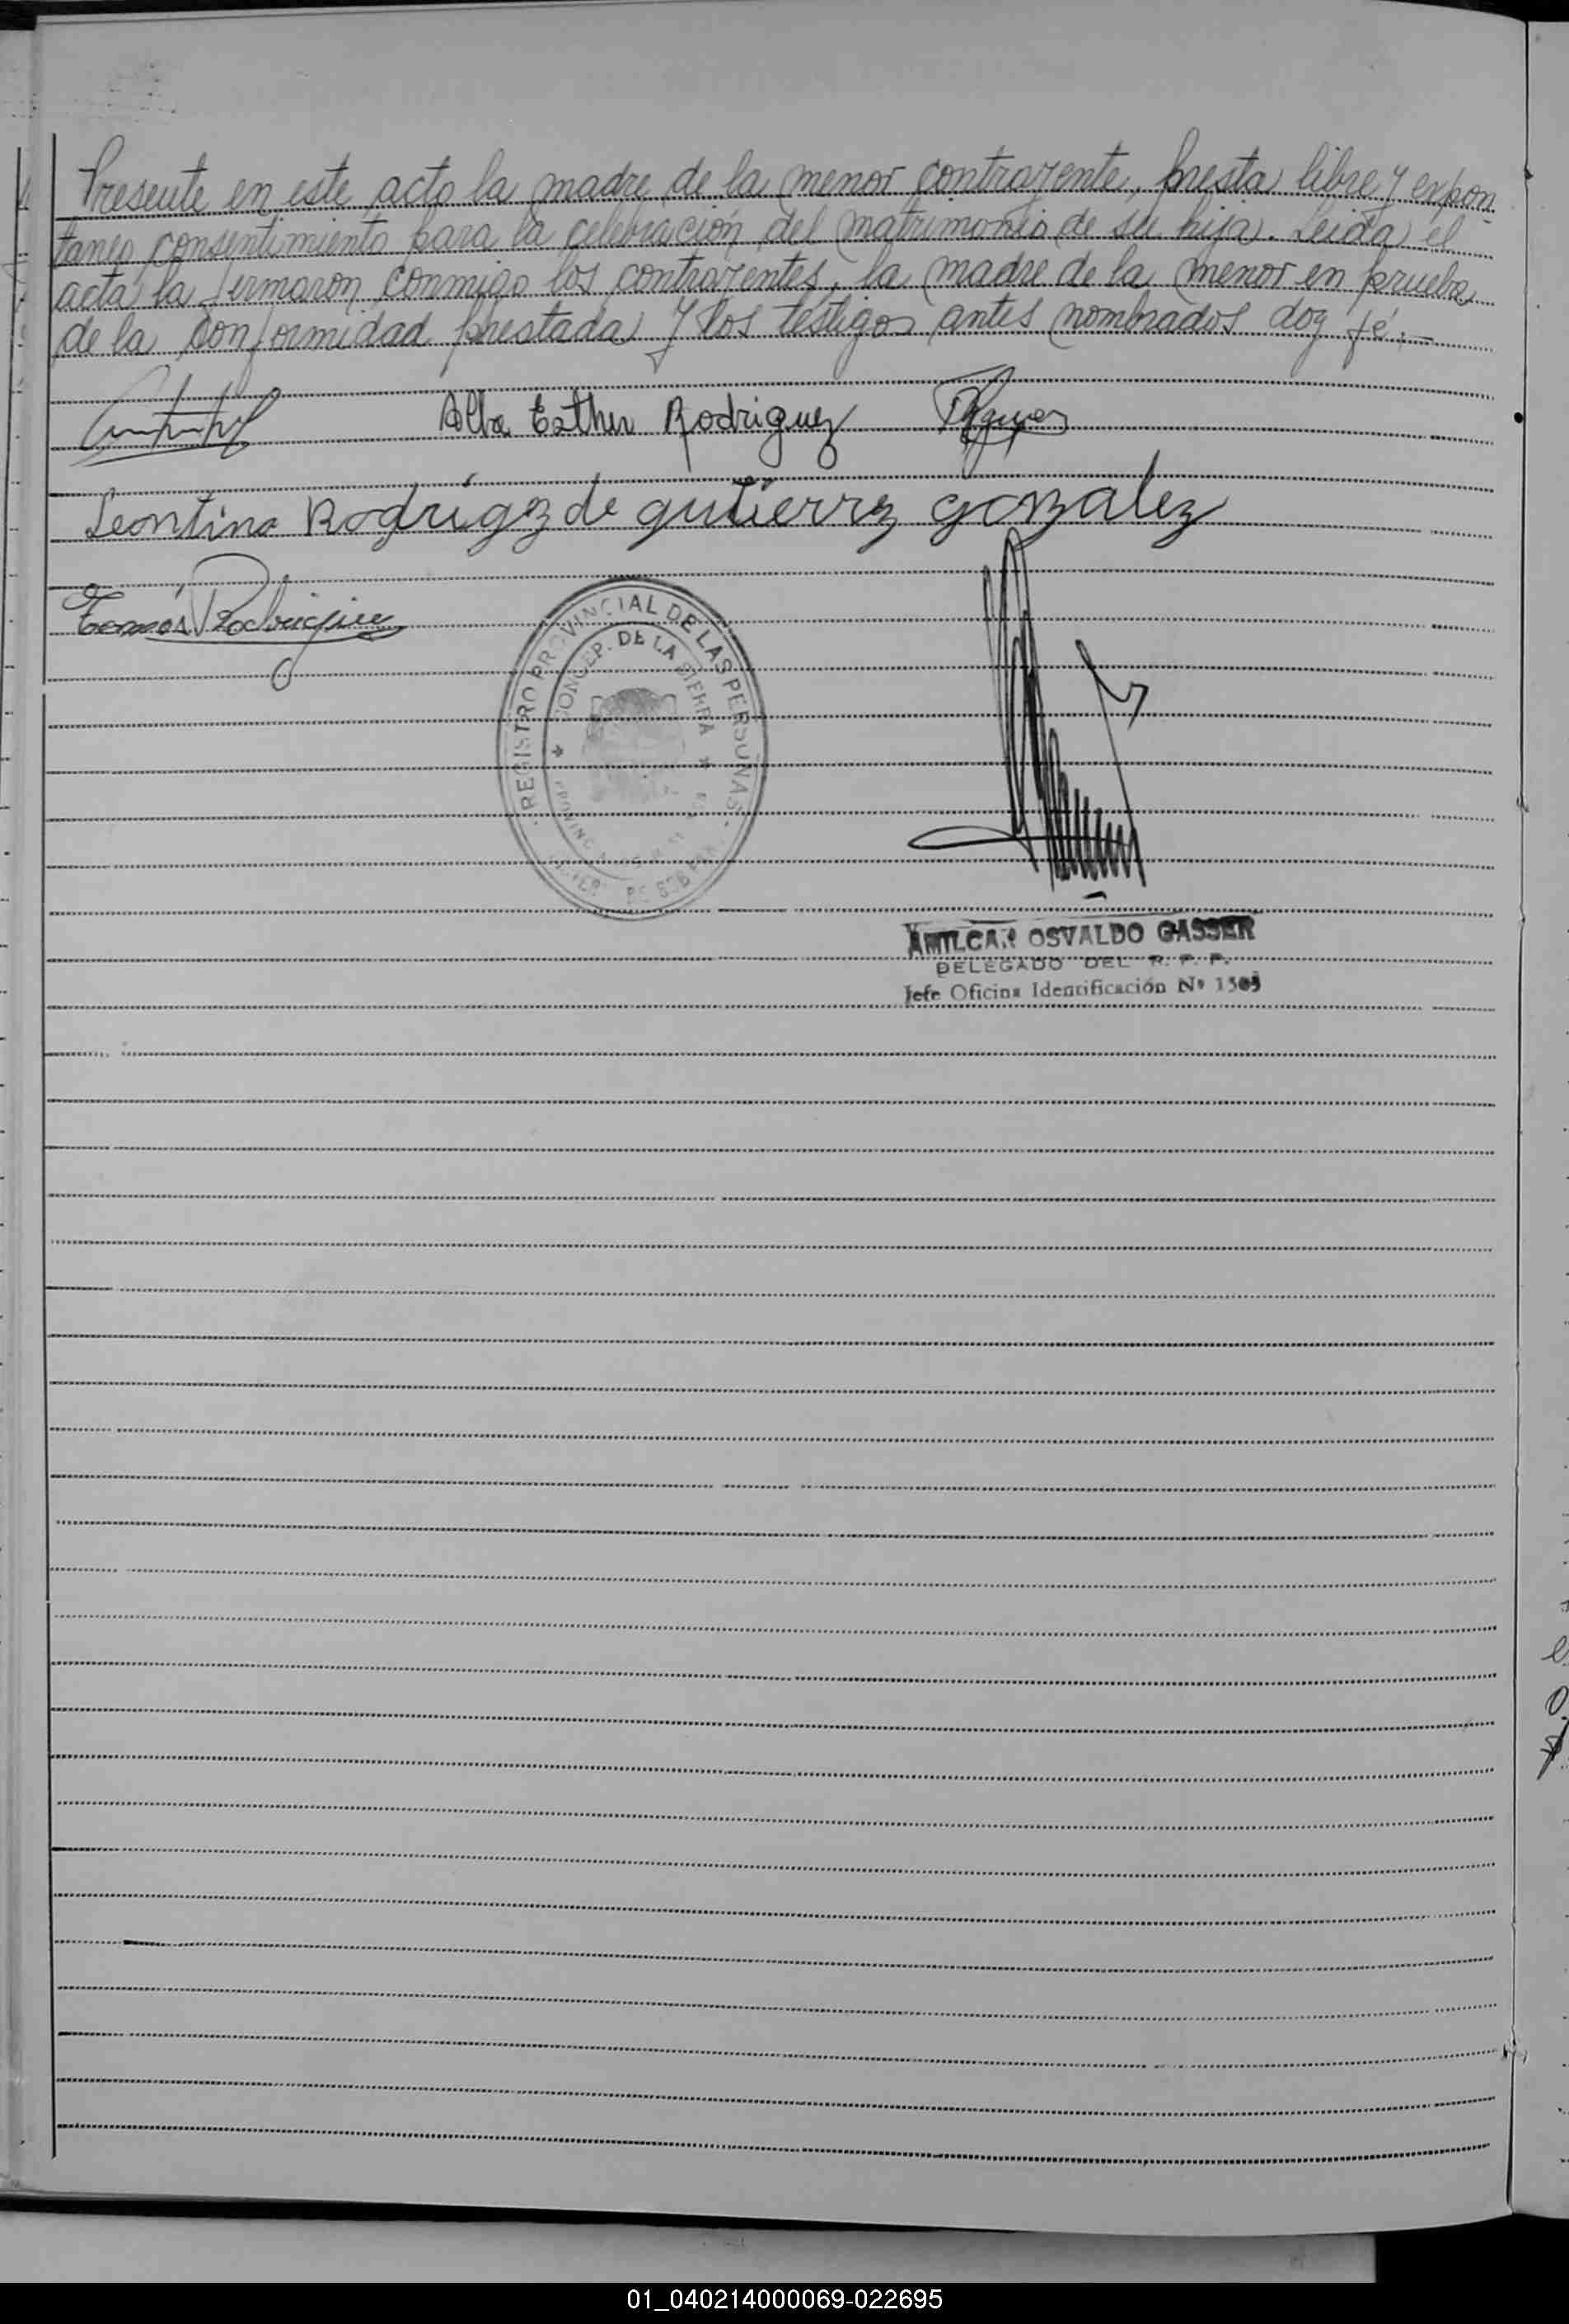 Presente en este acto la madre de la menor contrayente, presta libre y expon-
taneo consentimiento para la celebración del matrimonio de su hija. Leida el
acta la fermaron conmigo los contrayentes, la madre de la menor en prueba
de la conformidad prestada y los testigos antes nombrados doy fé.-
Alba Esther Rodriguez
Leontina Rodrígez de gutierrez gonzalez
Tomás Rodriguez
REGISTRO PROVINCIAL DE LAS PERSONAS
CONCEP. DE LA SIERRA
AMILCAR OSVALDO GASSER
DELEGADO DEL R. P. P.
Jefe Oficina Identificación Nº
01_040214000069-022695